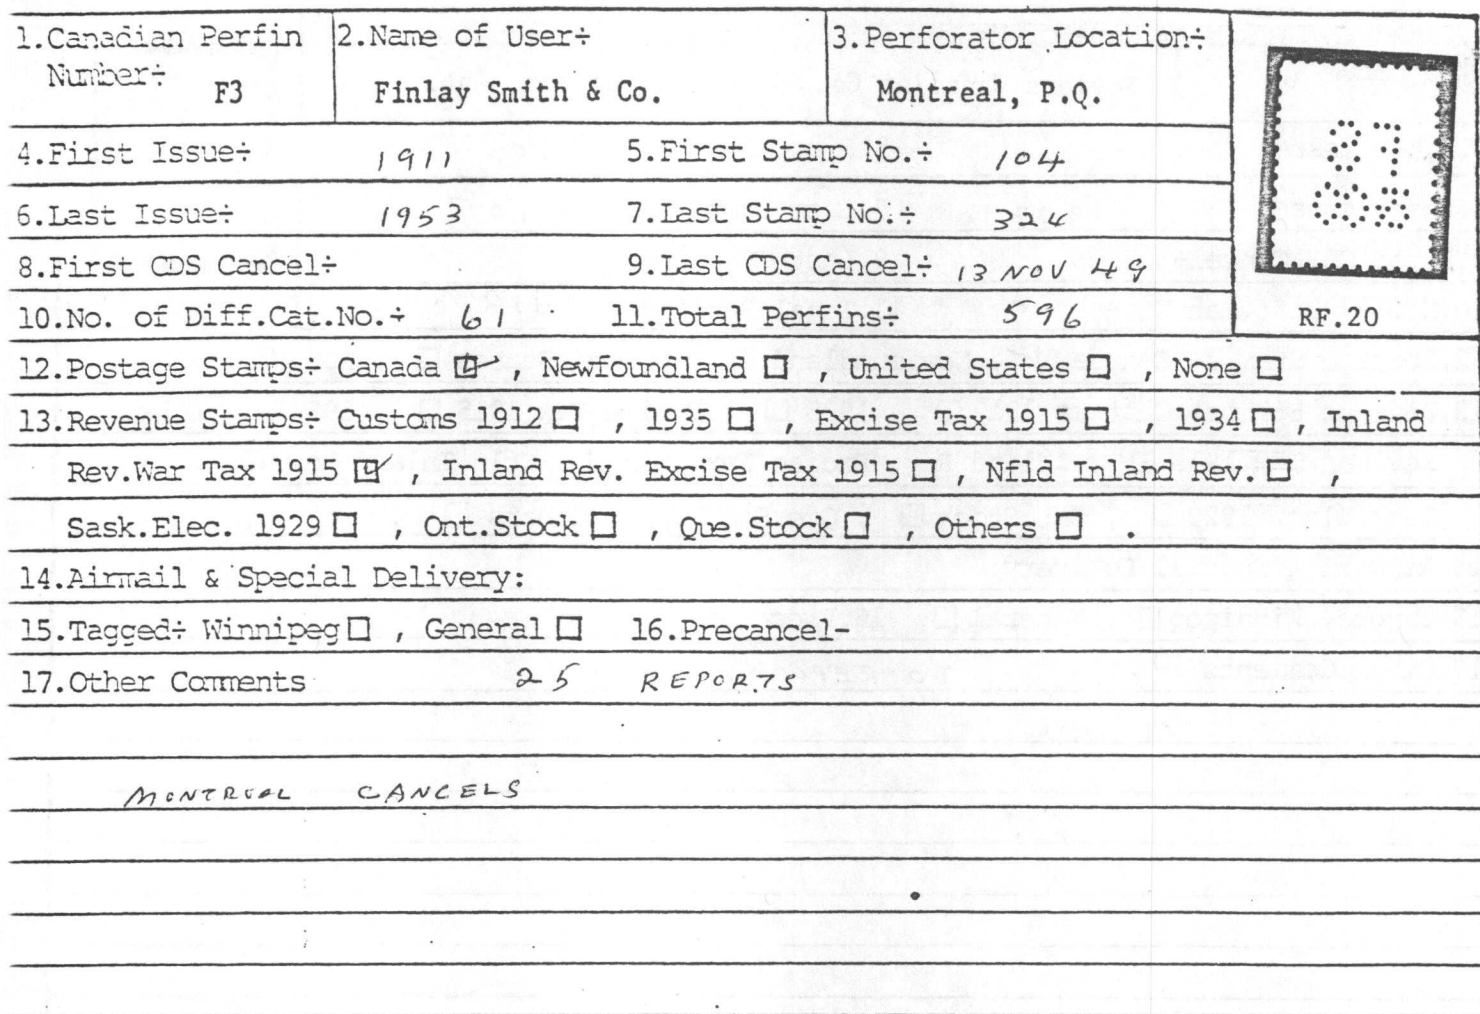 1.Canadian Perfin Number÷ F3
2.Name of User÷
Finlay Smith & Co.
3.Perforator Location÷
Montreal, P.Q.
4.First Issue÷ 1911 5.First Stamp No.÷ 104
6.Last Issue÷ 1953 7.Last Stamp No.÷ 324
8.First CDS Cancel÷ 9.Last CDS Cancel÷ 13 NOV 49
10.No. of Diff.Cat.No.÷ 61 11.Total Perfins÷ 596
RF.20
12.Postage Stamps÷ Canada ☑ , Newfoundland ☐ , United States ☐ , None ☐
13.Revenue Stamps÷ Customs 1912 ☐ , 1935 ☐ , Excise Tax 1915 ☐ , 1934 ☐ , Inland
Rev.War Tax 1915 ☑ , Inland Rev. Excise Tax 1915 ☐ , Nfld Inland Rev. ☐ ,
Sask.Elec. 1929 ☐ , Ont.Stock ☐ , Que.Stock ☐ , Others ☐ .
14.Airmail & Special Delivery:
15.Tagged÷ Winnipeg ☐ , General ☐ 16.Precancel-
17.Other Comments 25 REPORTS
MONTREAL CANCELS